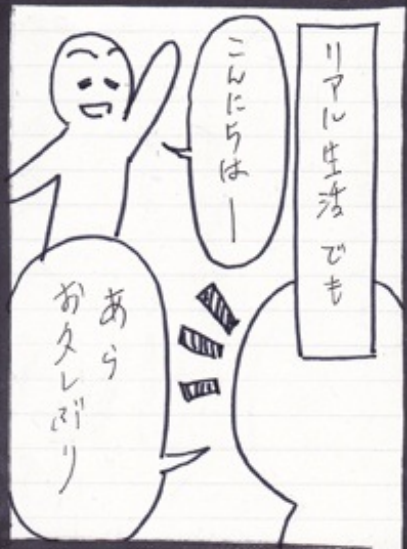 リアル生活でも
こんにちはー
あら
お久しぶり